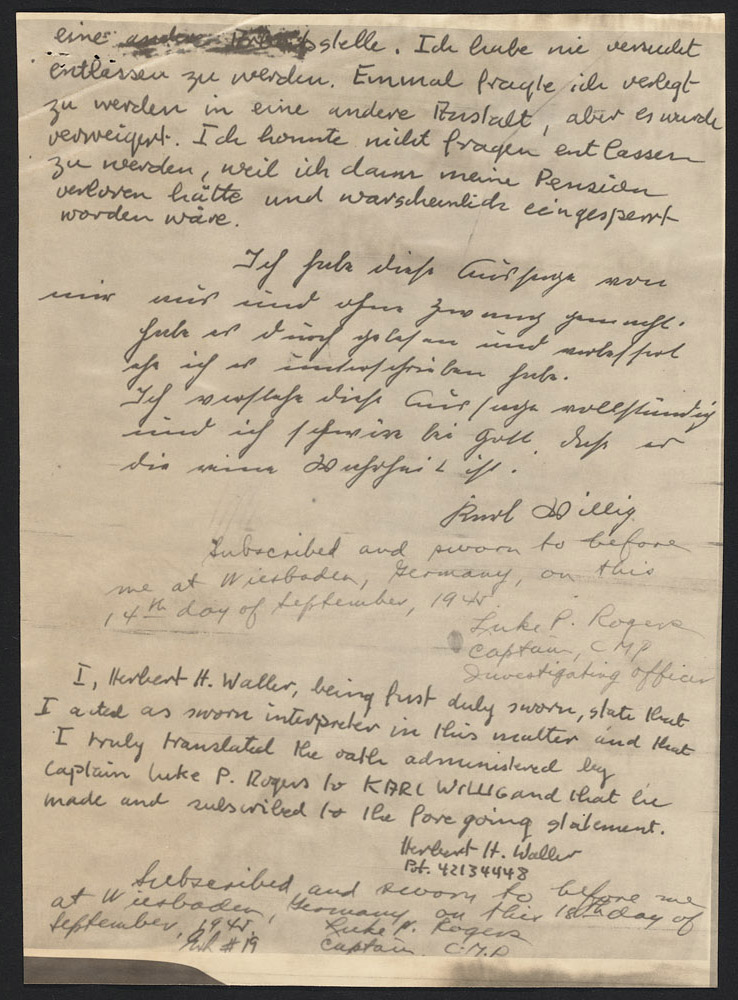 eine stelle. Ich habe nie versucht
entlassen zu werden. Einmal fragte ich verlegt
zu werden in eine andere Anstalt, aber es wurde
verweigert. Ich konnte nicht fragen entlassen
zu werden, weil ich dann meine Pension
verloren hätte und warscheinlich eingesperrt
worden wäre.
Ich habe diese Aussage von
mir aus und ohne Zwang gemacht.
habe es durchgelesen und verbessert
ehe ich es unterschrieben habe.
Ich verstehe diese Aussage vollständig
und ich schwöre bei Gott dass es
die reine Wahrheit ist.
Karl Willig
Subscribed and sworn to before
me at Wiesbaden, Germany, on this
14th day of September, 1945
Luke P. Rogers
Captain, CMP
Investigating officer
I, Herbert H. Waller, being first duly sworn, state that
I acted as sworn interpreter in this matter and that
I truly translated the oath administered by
Captain Luke P. Rogers to KARL WILLIG and that he
made and subscribed to the foregoing statement.
Herbert H. Waller
Pvt. 42134448
Subscribed and sworn to before me
at Wiesbaden, Germany, on this day of
September, 1945.
Luke P. Rogers
#19
Captain CMP